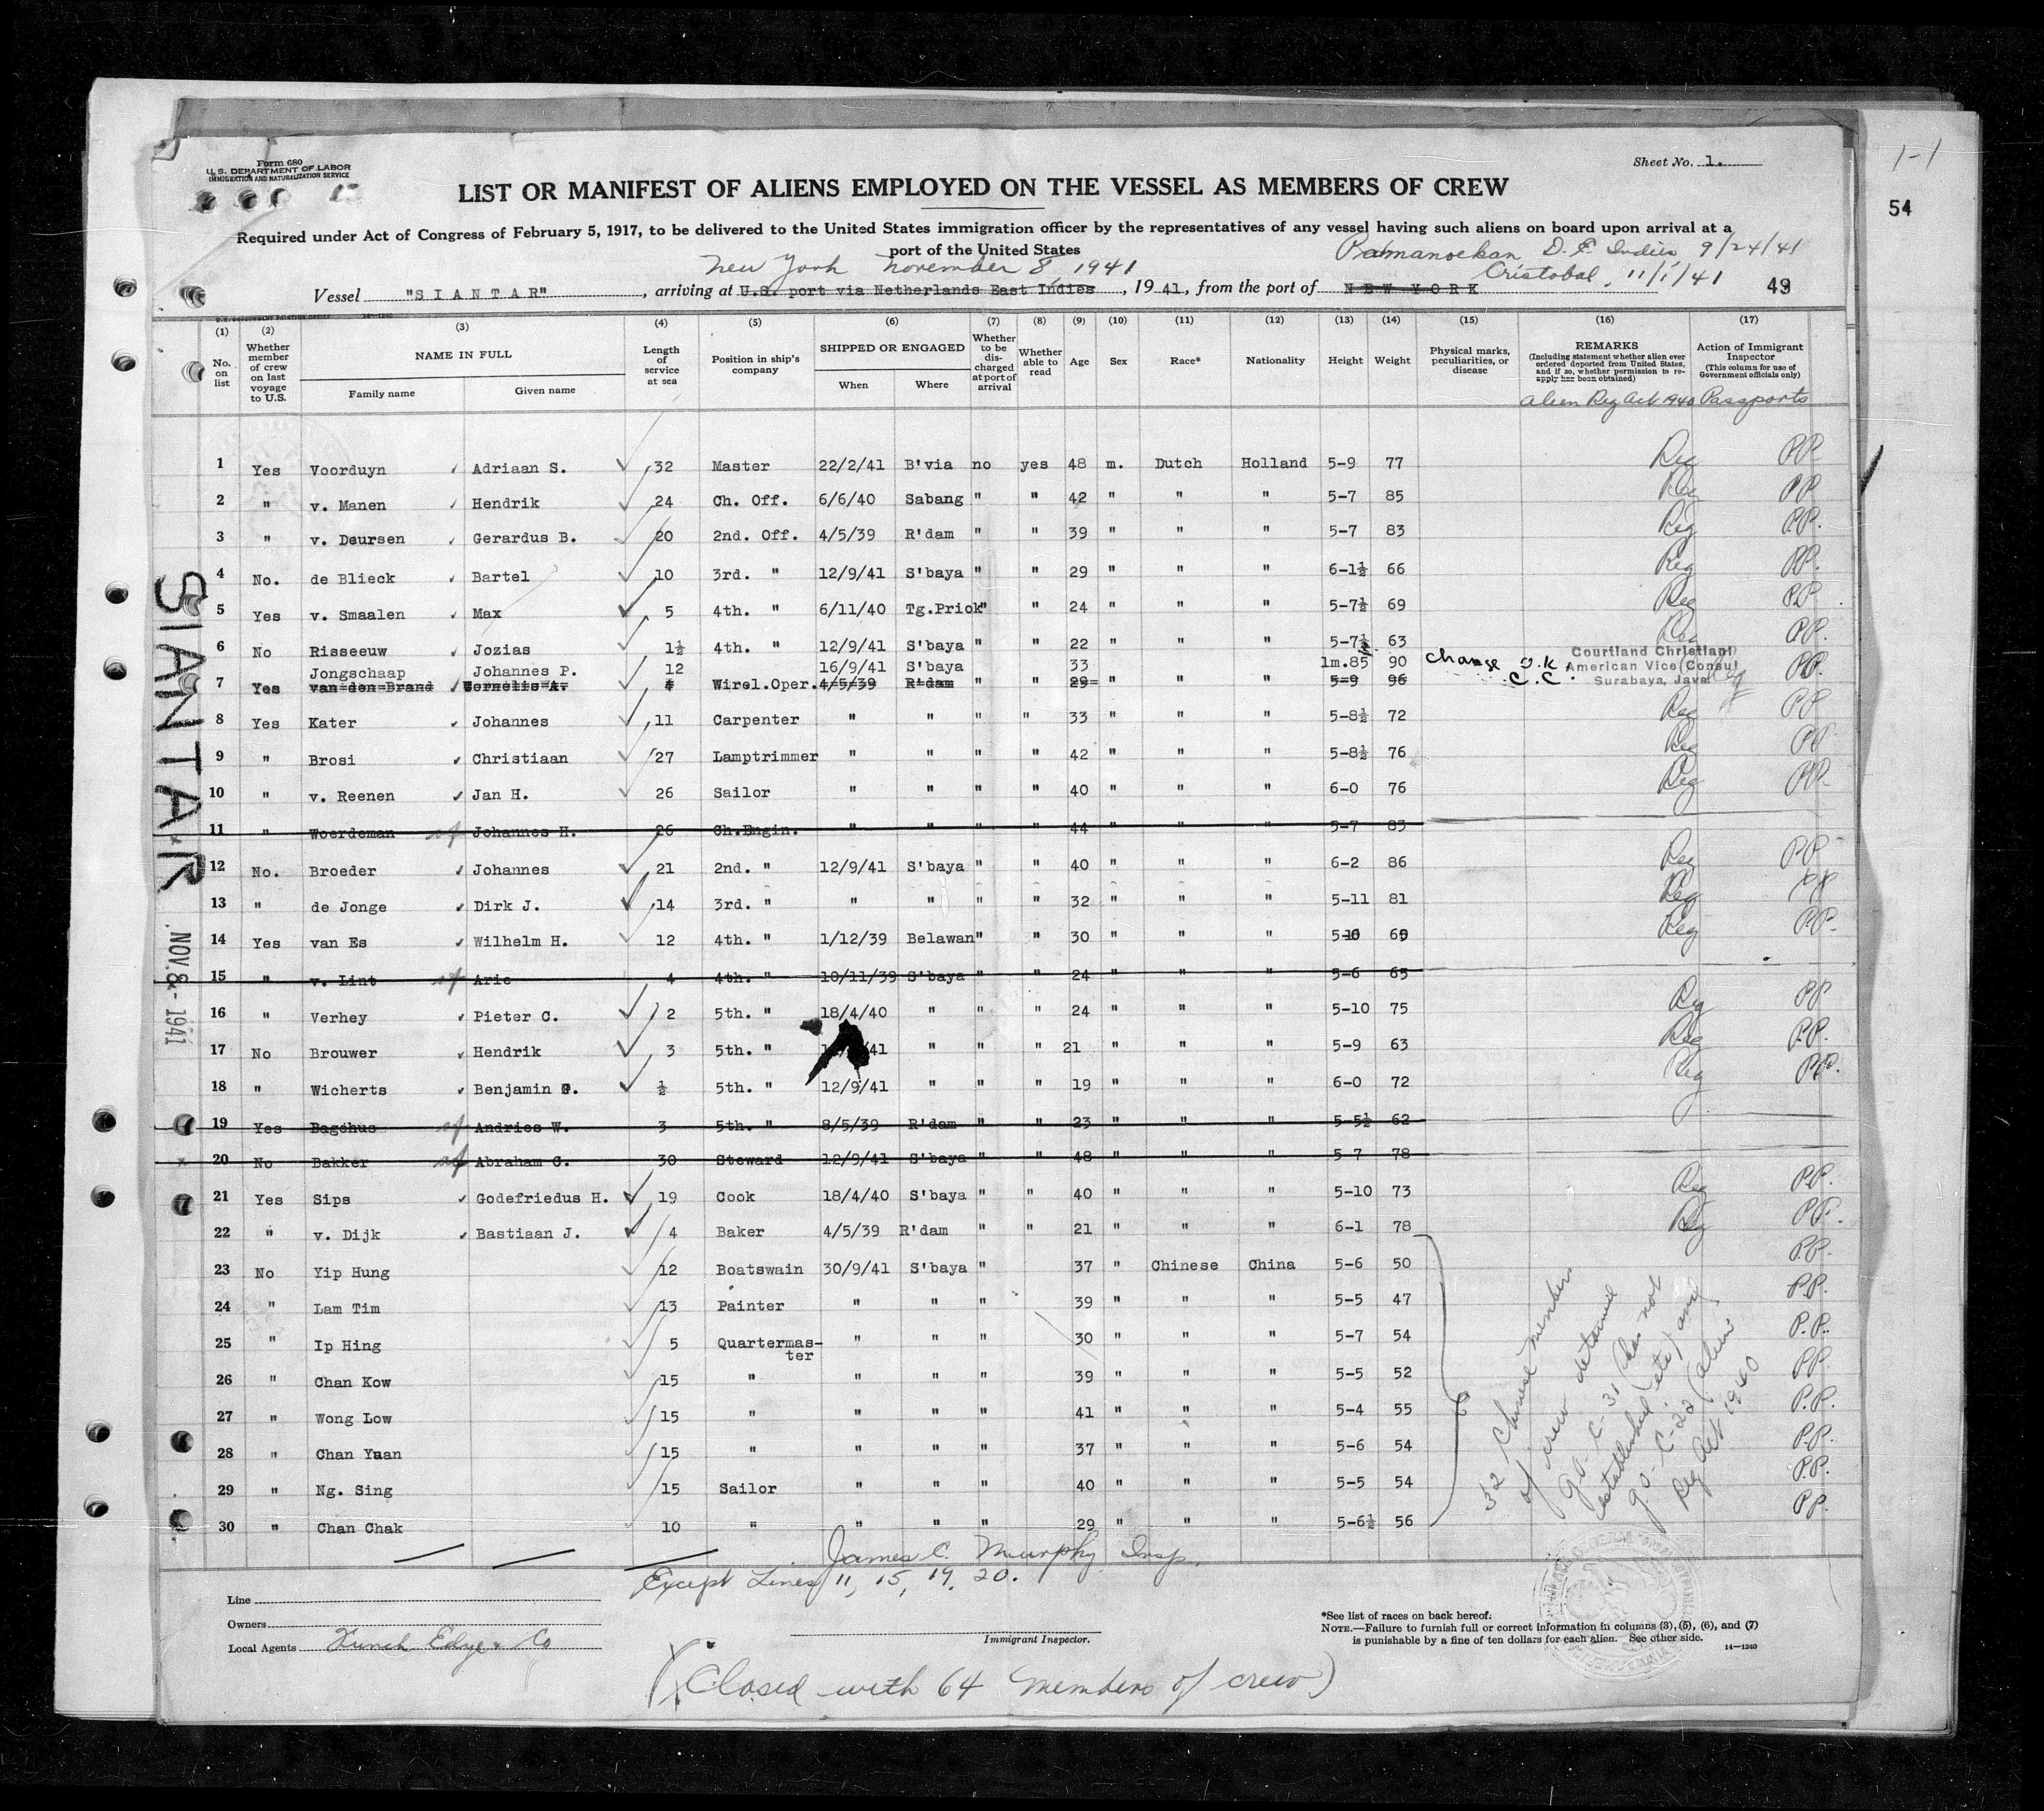 Form 680
U. S. DEPARTMENT OF LABOR
IMMIGRATION AND NATURALIZATION SERVICE
Sheet No. 1.
1-1
54
LIST OR MANIFEST OF ALIENS EMPLOYED ON THE VESSEL AS MEMBERS OF CREW
Required under Act of Congress of February 5, 1917, to be delivered to the United States immigration officer by the representatives of any vessel having such aliens on board upon arrival at a
port of the United States
New York November 8, 1941
D. E. Indies 9/24/41
Cristobal, 11/1/41
Vessel "SIANTAR", arriving at U.S. port via Netherlands East Indies, 1941, from the port of NEW YORK
(1) (2) (3) (4) (5) (6) (7) (8) (9) (10) (11) (12) (13) (14) (15) (16) (17)
No. on list
Whether member of crew on last voyage to U.S.
NAME IN FULL
Family name
Given name
Length of service at sea
Position in ship's company
SHIPPED OR ENGAGED
When
Where
Whether to be discharged at port of arrival
Whether able to read
Age
Sex
Race*
Nationality
Height
Weight
Physical marks, peculiarities, or disease
REMARKS
(Including statement whether alien ever ordered deported from United States, and if so, whether permission to reapply has been obtained)
Action of Immigrant Inspector
(This column for use of Government officials only)
Alien Reg Act 1940 Passports
1 Yes Voorduyn Adriaan S. 32 Master 22/2/41 B'via no yes 48 m. Dutch Holland 5-9 77 Reg PP
2 " v. Manen Hendrik 24 Ch. Off. 6/6/40 Sabang " " 42 " " " 5-7 85 Reg PP
3 " v. Deursen Gerardus B. 20 2nd. Off. 4/5/39 R'dam " " 39 " " " 5-7 83 Reg PP.
4 No. de Blieck Bartel 10 3rd. " 12/9/41 S'baya " " 29 " " " 6-1½ 66 Reg PP.
5 Yes v. Smaalen Max 5 4th. " 6/11/40 Tg.Priok " " 24 " " " 5-7½ 69 Reg PP
6 No Risseeuw Jozias 1½ 4th. " 12/9/41 S'baya " " 22 " " " 5-7½ 63 Reg PP.
Jongschaap Johannes P. 12 16/9/41 S'baya 33 1m.85 90 Change O.K. C.C.
Courtland Christiani
American Vice Consul
Surabaya, Java
7 Yes van den Brand Cornelis A. 4 Wirel.Oper. 4/5/39 R'dam " " 29 " " " 5-9 96 Reg PP.
8 Yes Kater Johannes 11 Carpenter " " " " 33 " " " 5-8½ 72 Reg PP
9 " Brosi Christiaan 27 Lamptrimmer " " " " 42 " " " 5-8½ 76 Reg PP
10 " v. Reenen Jan H. 26 Sailor " " " " 40 " " " 6-0 76 Reg PP.
11 " Woerdeman Johannes H. 26 Ch.Engin. " " " " 44 " " " 5-7 83
12 No. Broeder Johannes 21 2nd. " 12/9/41 S'baya " " 40 " " " 6-2 86 Reg PP
13 " de Jonge Dirk J. 14 3rd. " " " " " 32 " " " 5-11 81 Reg PP
14 Yes van Es Wilhelm H. 12 4th. " 1/12/39 Belawan " " 30 " " " 5-10 69 Reg PP.
15 " v. Lint Arie 4 4th. " 10/11/39 S'baya " " 24 " " " 5-6 65
16 " Verhey Pieter C. 2 5th. " 18/4/40 " " " 24 " " " 5-10 75 Reg PP
17 No Brouwer Hendrik 3 5th. " 41 " " " 21 " " " 5-9 63 Reg PP.
18 " Wicherts Benjamin 5th. " ½ 12/9/41 " " " 19 " " " 6-0 72 Reg PP.
19 Yes Bagchus Andries W. 3 5th. " 8/5/39 R'dam " " 23 " " " 5-5½ 62
20 No Bakker Abraham C. 30 Steward 12/9/41 S'baya " " 48 " " " 5-7 78
21 Yes Sips Godefriedus H. 19 Cook 18/4/40 S'baya " " 40 " " " 5-10 73 Reg PP.
22 " v. Dijk Bastiaan J. 4 Baker 4/5/39 R'dam " " 21 " " " 6-1 78 Reg PP.
23 No Yip Hung 12 Boatswain 30/9/41 S'baya " 37 " Chinese China 5-6 50 PP.
24 " Lam Tim 13 Painter " " " 39 " " " 5-5 47 PP.
25 " Ip Hing 5 Quartermas-ter " " " 30 " " " 5-7 54 P.P.
26 " Chan Kow 15 " " " " 39 " " " 5-5 52 PP.
27 " Wong Low 15 " " " " 41 " " " 5-4 55 P.P.
28 " Chan Yuan 15 " " " " 37 " " " 5-6 54 P.P.
29 " Ng. Sing 15 Sailor " " " 40 " " " 5-5 54 P.P.
30 " Chan Chak 10 " " " " 29 " " " 5-6½ 56 PP.
32 Chinese members
of crew detained
go-C-31 (has not
established etc) and
go-C-22 (alien
Reg Act 1940
SIANTAR
NOV. 8 - 1941
James C. Murphy Insp.
Except Lines 11, 15, 19, 20.
Line
Owners
Local Agents Funch Edye & Co
Immigrant Inspector.
*See list of races on back hereof.
NOTE.—Failure to furnish full or correct information in columns (3), (5), (6), and (7)
is punishable by a fine of ten dollars for each alien. See other side.
14—1240
(Closed with 64 members of crew)